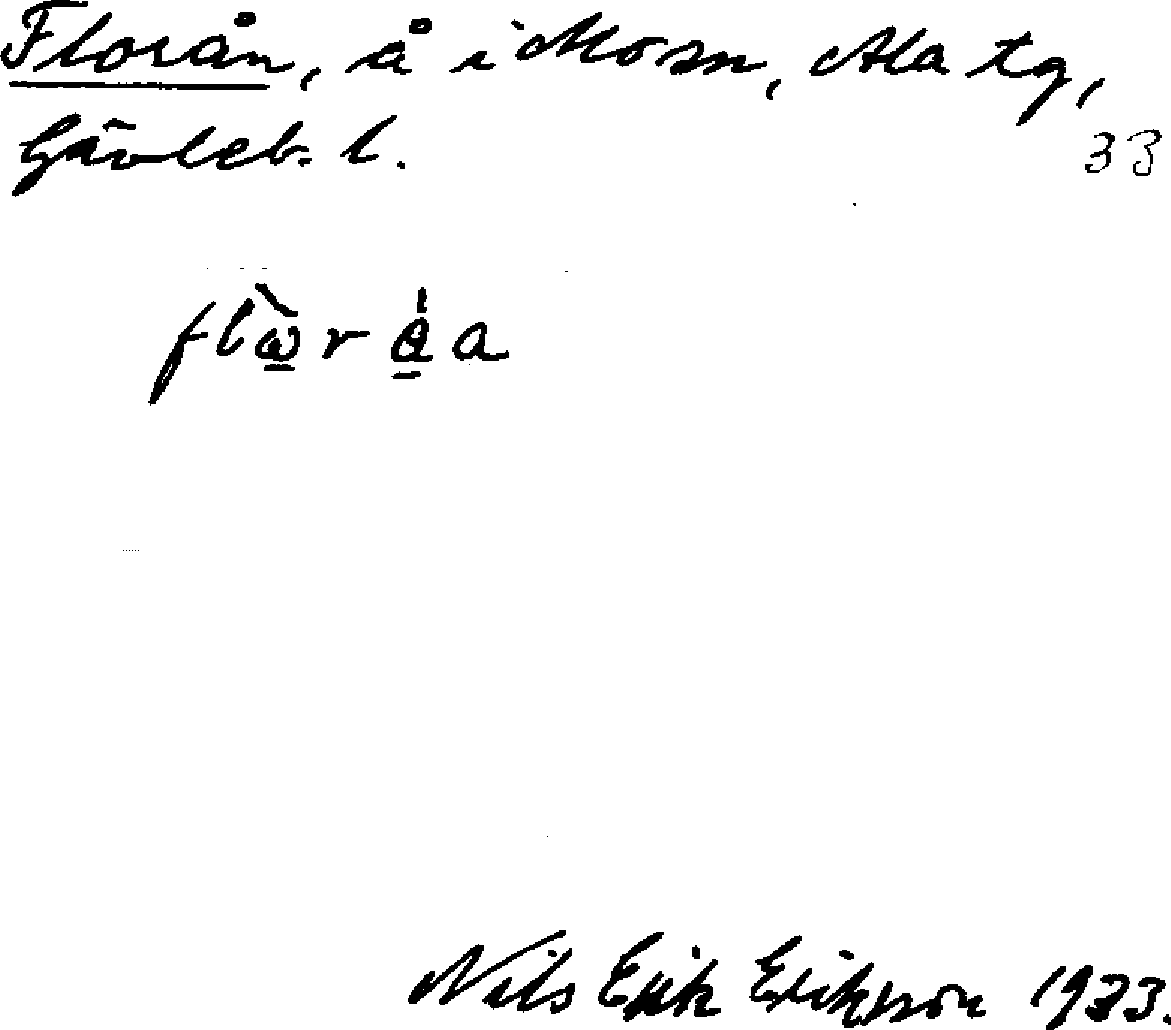 Florån, å i Mo sn, Ala tg,
Gävleb. l.
33
Nils Erik Erikson 1933.